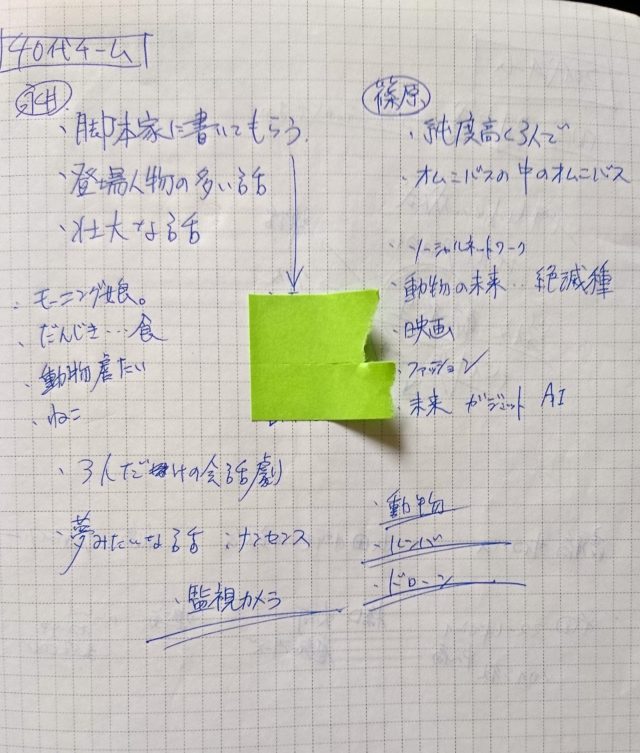 40代チーム
永井
・脚本家に書いてもらう
・登場人物の多い話
・壮大な話
・モーニング娘。
・だんじき…食
・動物虐たい
・ねこ
・3人だけの会話劇
・夢みたいな話 ナンセンス
・監視カメラ
篠原
・純度高く3人で
・オムニバスの中のオムニバス
・ソーシャルネットワーク
・動物の未来…絶滅種
・映画
・ファッション
・未来 ガジェット AI
・動物
・ルンバ
・ドローン